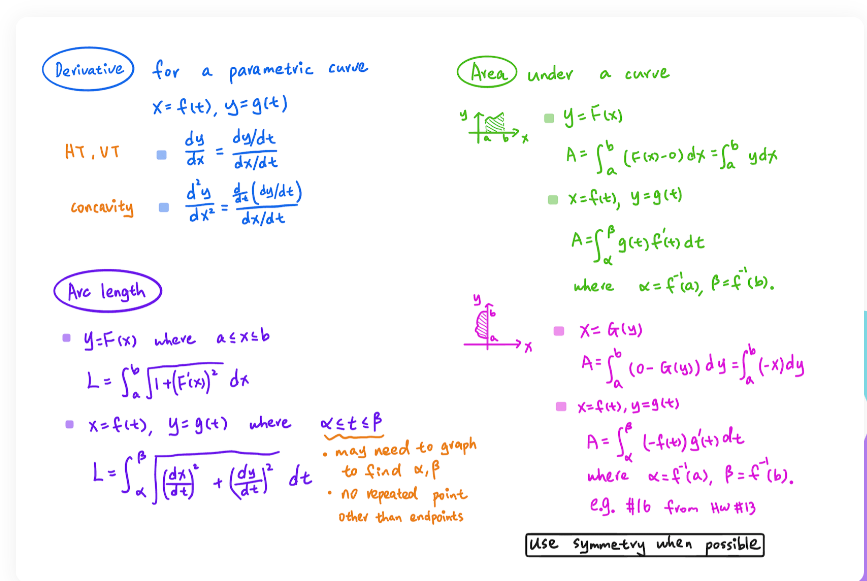 Derivative for a parametric curve
x = f(t), y = g(t)
HT, VT
dy/dx = (dy/dt)/(dx/dt)
concavity
d²y/dx² = (d/dt (dy/dt))/(dx/dt)
Arc length
y = F(x) where a ≤ x ≤ b
L = ∫_a^b √(1 + (F'(x))²) dx
x = f(t), y = g(t) where α ≤ t ≤ β
L = ∫_α^β √((dx/dt)² + (dy/dt)²) dt
• may need to graph
to find α, β
• no repeated point
other than endpoints
Area under a curve
y
a b x
y = F(x)
A = ∫_a^b (F(x) - 0) dx = ∫_a^b y dx
x = f(t), y = g(t)
A = ∫_α^β g(t) f'(t) dt
where α = f⁻¹(a), β = f⁻¹(b).
y
b
a
x
x = G(y)
A = ∫_a^b (0 - G(y)) dy = ∫_a^b (-x) dy
x = f(t), y = g(t)
A = ∫_α^β (-f(t)) g'(t) dt
where α = f⁻¹(a), β = f⁻¹(b).
e.g. #16 from HW #13
Use symmetry when possible